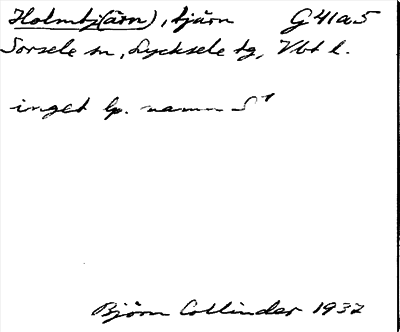 Holmtj(ärn), tjärn G41a5
Sorsele sn, Lycksele tg, Vbt l.
inget lp. namn S¹
Björn Collinder 1937